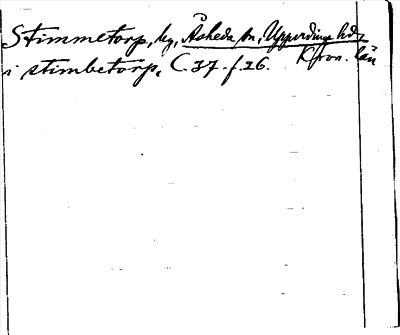 Stimmetorp, by, Åsheda sn, Uppvidinge hd,
Kron. län
i stimbetorp, C 37 f. 26.